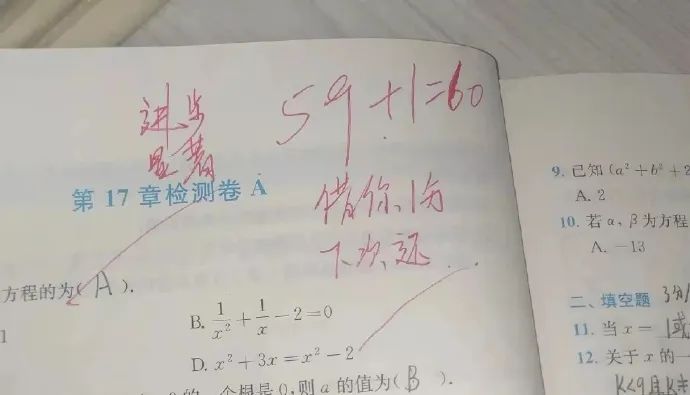 进步
显著
59+1=60
借你1分
下次还
第 17 章检测卷 A
方程的为(A).
B. 1/x² + 1/x − 2 = 0
1
D. x² + 3x = x² − 2
一个根是 0,则 a 的值为(B).
9. 已知 (a² + b² + 2
A. 2
10. 若 α、β 为方程
A. −13
二、填空题 3分/
11. 当 x = 1或
12. 关于 x 的一
K<9且K≠